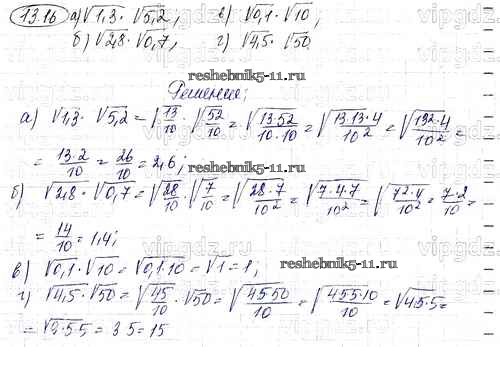 13.16 а) √1,3 · √5,2; в) √0,1 · √10;
б) √2,8 · √0,7; г) √4,5 · √50
reshebnik5-11.ru
Решение;
а) √1,3 · √5,2 = √13/10 · √52/10 = √(13·52/10·10) = √(13·13·4/10²) = √(13²·4/10²) =
= 13·2/10 = 26/10 = 2,6;
б) √2,8 · √0,7 = √28/10 · √7/10 = √(28·7/10²) = √(7·4·7/10²) = √(7²·4/10²) = 7·2/10 =
= 14/10 = 1,4;
в) √0,1 · √10 = √0,1·10 = √1 = 1;
reshebnik5-11.ru
г) √4,5 · √50 = √45/10 · √50 = √(45·50/10) = √(45·5·10/10) = √45·5 =
= √9·5·5 = 3·5 = 15
vipgdz.ru